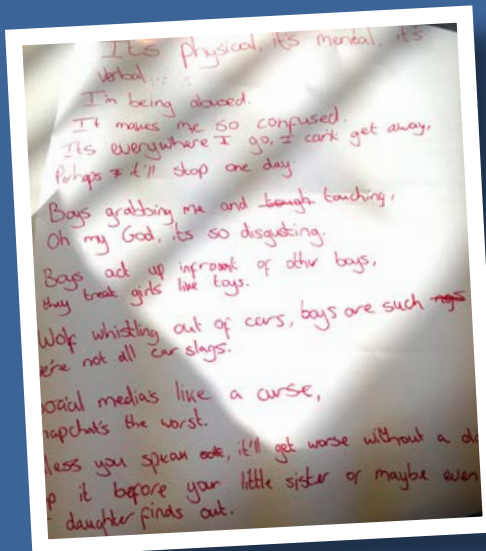 Its physical, it's mental, it's
verbal...
I'm being abused.
It makes me so confused.
Its everywhere I go, I can't get away,
Perhaps it'll stop one day.
Boys grabbing me and touching,
Oh my God, its so disgusting.
Boys act up infront of other boys,
they treat girls like toys.
Wolf whistling out of cars, boys are such
we're not all car slags.
Social media's like a curse,
Snapchat's the worst.
less you speak, it'll get worse without a
p it before your little sister or maybe even
daughter finds out.